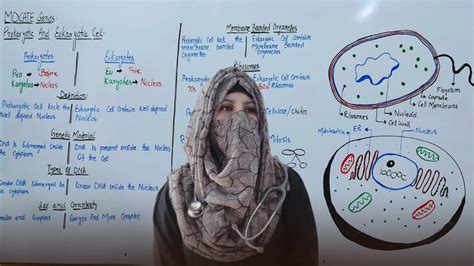 MDCATE Series
Prokaryotic And Eukaryotic Cell.
Prokaryotes
Eukaryotes
Pro → Before
Eu → True
Karyotes → Nucleus
Karyotes → Nucleus
Definition
Prokaryotic Cell lack the well defined Nucleus
Eukaryotic Cell Contain Well defined Nucleus
Genetic Material
DNA is Submerged inside the Cytoplasm
DNA is present inside the Nucleus Of the Cell
Types of DNA
DNA Submerged in Cytoplasm
Linear DNA inside the Nucleus
Size and Complexity
Smaller and Simplest
Larger And More Complex
Membrane Bounded Organelles
Prokaryotic Cell lack the membrane bounded Organelles
Eukaryotic Cell Contain Membrane Organelles
Ribosomes
Prokaryotic
Eukaryotic Cell have
Ribosomes
Cellulose/Chitin
Mitosis
Flagellum
Capsule
Cell Membrane
Nucleoid
Cell Wall
Ribosomes
Mitochondria
ER
Nucleus